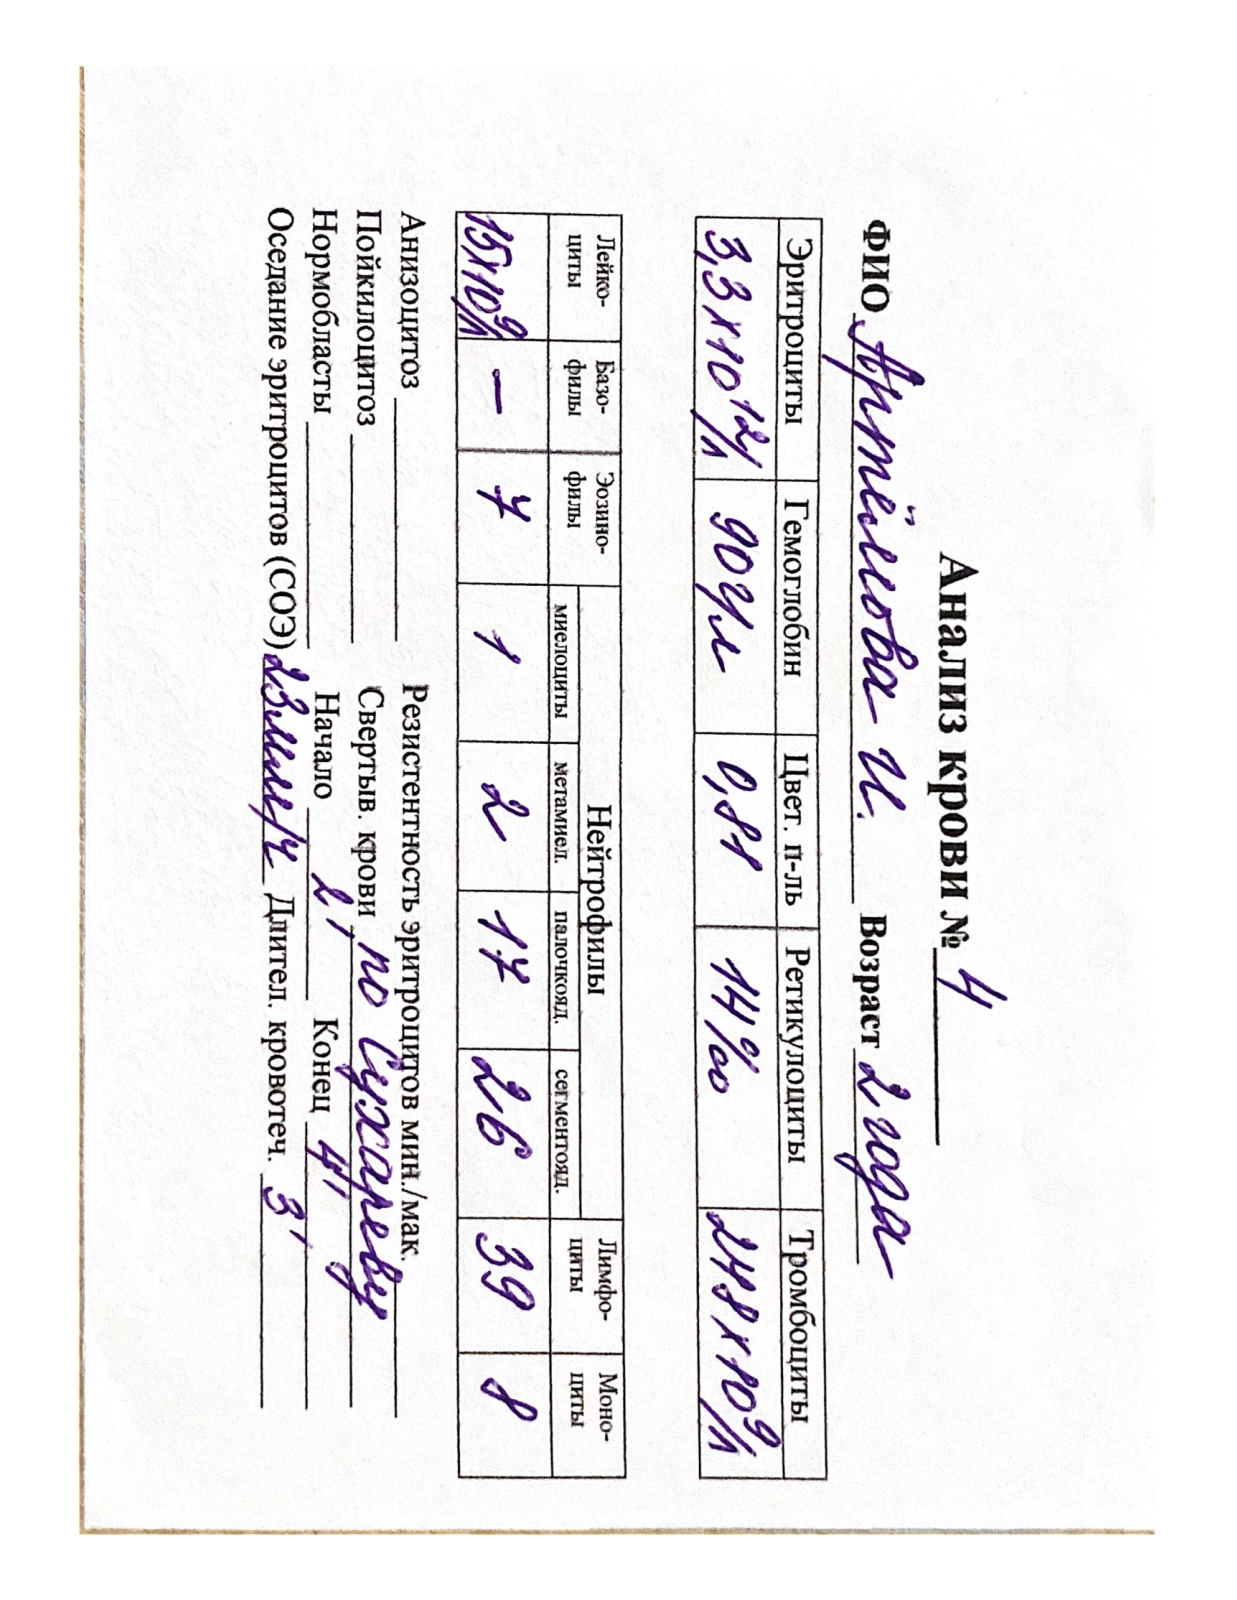 Анализ крови № 4
ФИО Артёмова И. Возраст 2 года
Эритроциты Гемоглобин Цвет. п-ль Ретикулоциты Тромбоциты
3,3х10¹²/л 90г/л 0,81 14‰ 248х10⁹/л
Лейко-циты Базо-филы Эозино-филы Нейтрофилы Лимфо-циты Моно-циты
миелоциты метамиел. палочкояд. сегментояд.
15х10⁹/л – 7 1 2 17 26 39 8
Анизоцитоз Резистентность эритроцитов мин./мак.
Пойкилоцитоз Свертыв. крови по Сухареву
Нормобласты Начало 2' Конец 4'
Оседание эритроцитов (СОЭ) 23мм/ч Длител. кровотеч. 3'